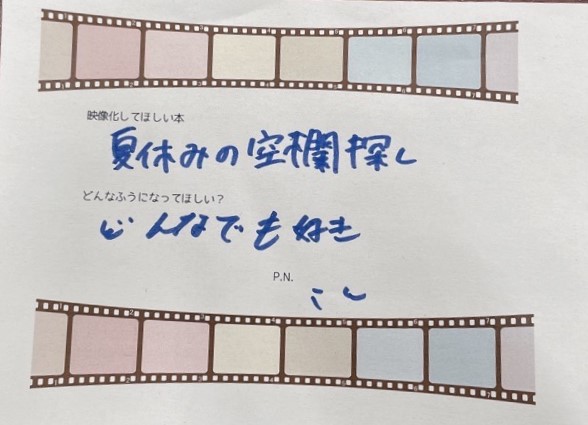 映像化してほしい本
夏休みの空欄探し
どんなふうになってほしい？
どんなでも好き
P.N.
こし